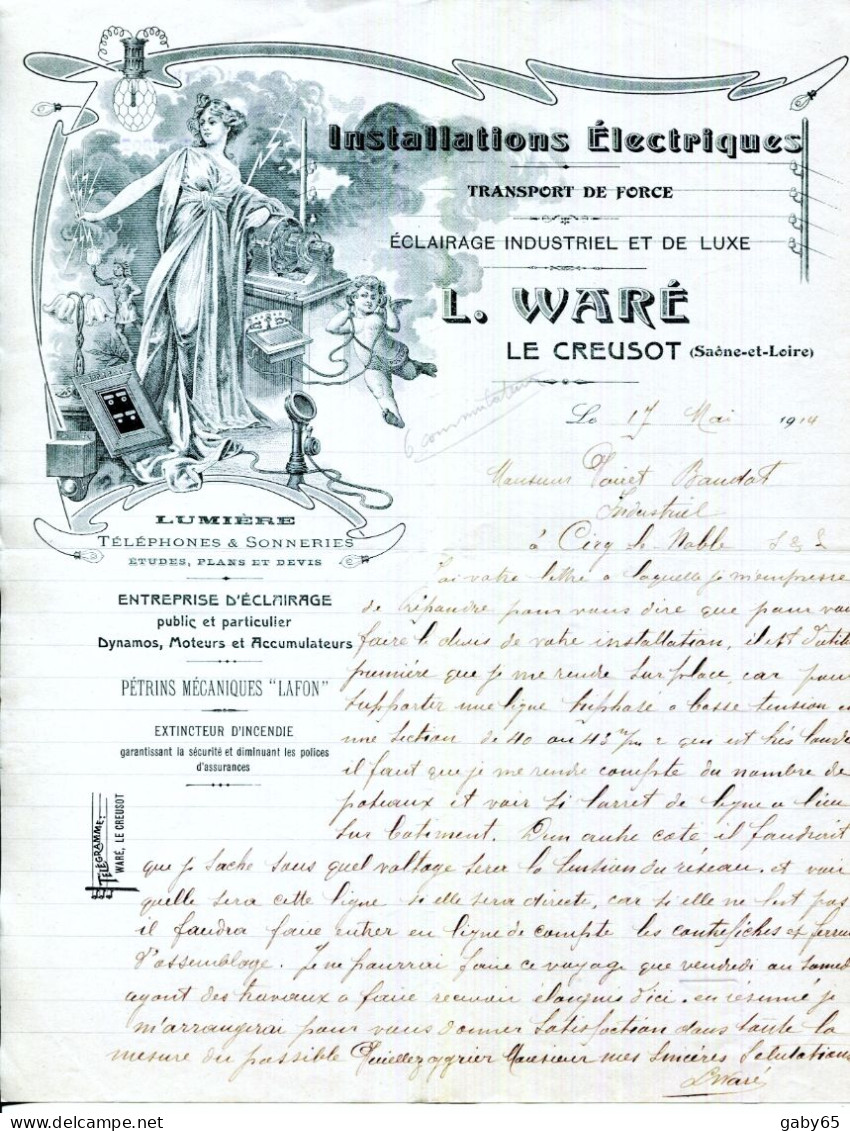 Installations Électriques
TRANSPORT DE FORCE
ÉCLAIRAGE INDUSTRIEL ET DE LUXE
L. WARÉ
LE CREUSOT (Saêne-et-Loire)
6 commutateurs
Le 17 Mai 1914
Monsieur Baudot
Industriel
à Ciry le Noble S & L
LUMIÈRE
TÉLÉPHONES & SONNERIES
ÉTUDES, PLANS ET DEVIS
ENTREPRISE D'ÉCLAIRAGE
public et particulier
Dynamos, Moteurs et Accumulateurs
PÉTRINS MÉCANIQUES "LAFON"
EXTINCTEUR D'INCENDIE
garantissant la sécurité et diminuant les polices
d'assurances
TÉLÉGRAMME:
WARÉ, LE CREUSOT
J'ai votre lettre a laquelle je m'empresse
de répondre pour vous dire que pour vous
faire le devis de votre installation, il est d'utilité
première que je me rende sur place, car pour
supporter une ligne triphasé a basse tension
une section de 40 au 43 m/m 2 qui est très lourde
il faut que je me rende compte du nombre de
poteaux et voir si l'arret de ligne a lieu
sur batiment. D'un autre coté il faudrait
que je sache sous quel voltage sera la tension du réseau. et voir
quelle sera cette ligne si elle sera directe, car si elle ne l'est pas
il faudra faire entrer en ligne de compte les contrefiches et ferrures
d'assemblage. Je ne pourrai faire ce voyage que vendredi au samedi
ayant des travaux a faire recevoir éloignés d'ici. en résumé je
m'arrangerai pour vous donner satisfaction dans toute la
mesure du possible Veuillez agréer Monsieur mes sincères Salutations
L Waré
gaby65